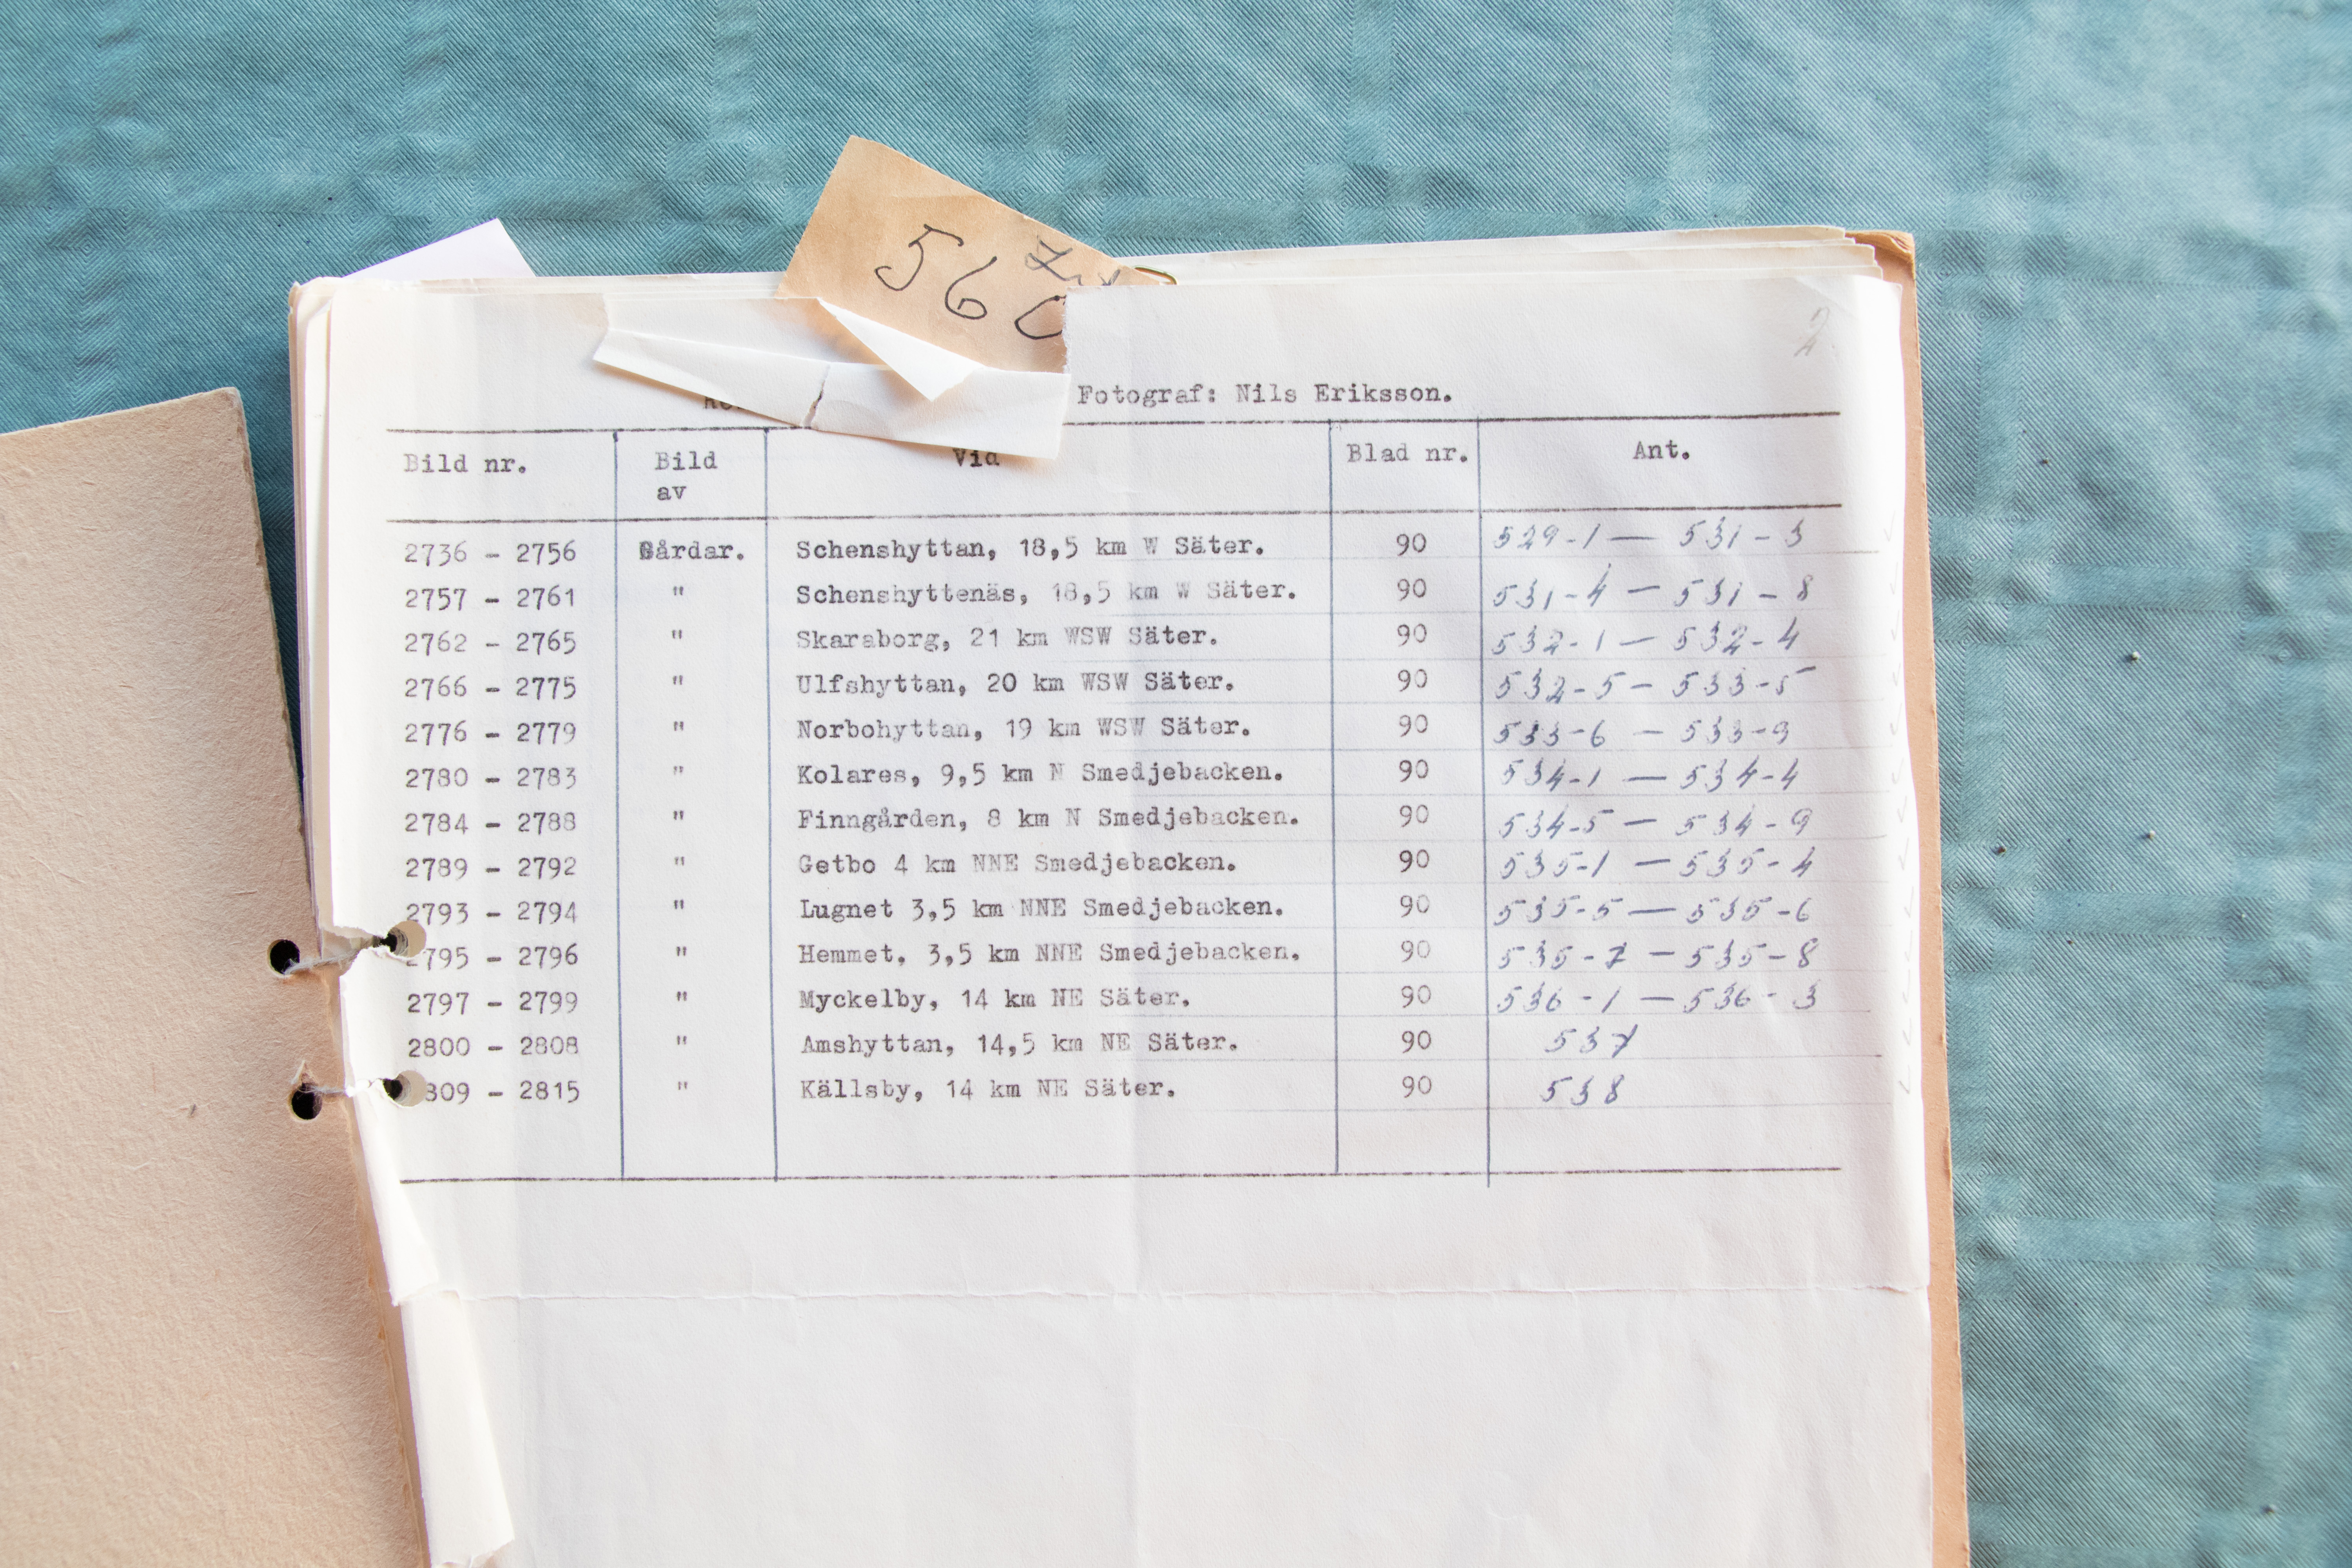 560
2
Fotograf: Nils Eriksson.
Bild nr. Bild av Vid Blad nr. Ant.
2736 - 2756 Gårdar. Schenshyttan, 18,5 km W Säter. 90 529-1 — 531-3
2757 - 2761 " Schenshyttenäs, 18,5 km W Säter. 90 531-4 — 531-8
2762 - 2765 " Skaraborg, 21 km WSW Säter. 90 532-1 — 532-4
2766 - 2775 " Ulfshyttan, 20 km WSW Säter. 90 532-5 — 533-5
2776 - 2779 " Norbohyttan, 19 km WSW Säter. 90 533-6 — 533-9
2780 - 2783 " Kolares, 9,5 km N Smedjebacken. 90 534-1 — 534-4
2784 - 2788 " Finngården, 8 km N Smedjebacken. 90 534-5 — 534-9
2789 - 2792 " Getbo 4 km NNE Smedjebacken. 90 535-1 — 535-4
2793 - 2794 " Lugnet 3,5 km NNE Smedjebacken. 90 535-5 — 535-6
2795 - 2796 " Hemmet. 3,5 km NNE Smedjebacken. 90 535-7 — 535-8
2797 - 2799 " Myckelby, 14 km NE Säter. 90 536-1 — 536-3
2800 - 2808 " Amshyttan, 14,5 km NE Säter. 90 537
809 - 2815 " Källsby, 14 km NE Säter. 90 538